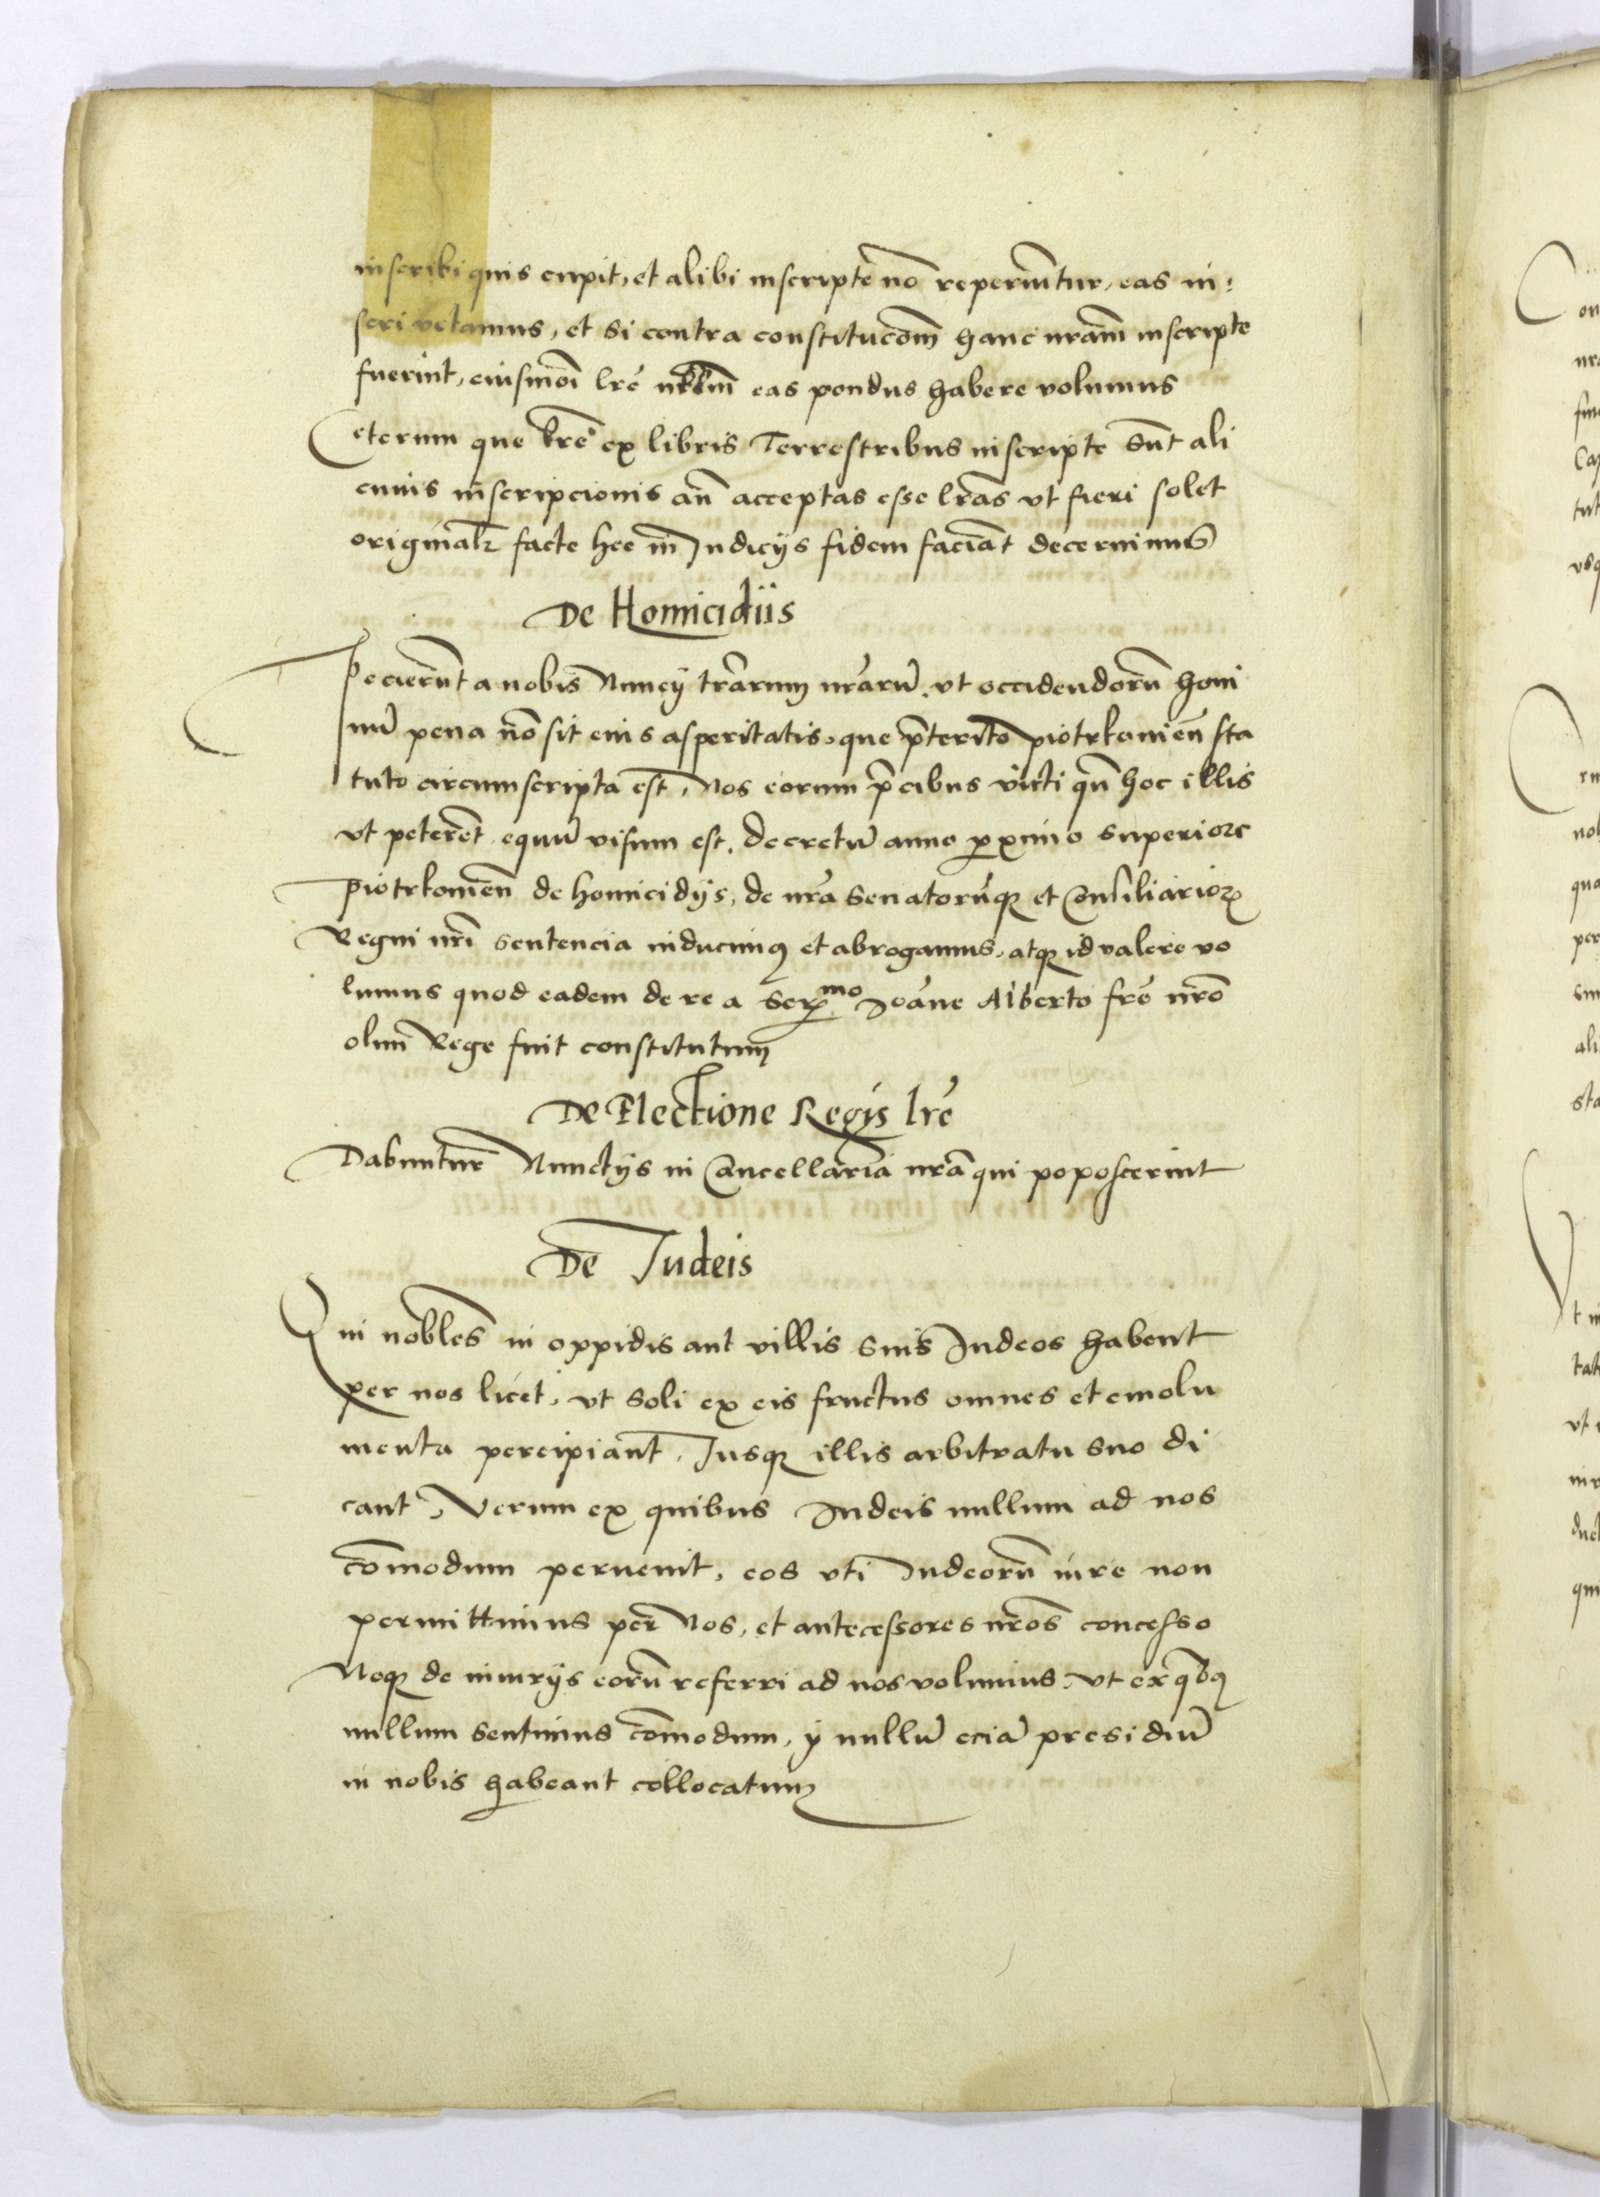 inscribi quis cupit, et alibi inscripte nō reperiūtur, eas in:
seri vetamus, et si contra constitucōm hanc nrām inscripte
fuerint, eiusmōi lrē eas pondus habere volumus
Ceterum que lrē ex libris Terrestribus inscripte sūt ali
cuius inscripcionis añ acceptas esse lrās vt fieri solet
originalr facte hee in Iudicijs fidem faciāt decernimus
De Homicidiis
Pecierūt a nobis Nuncij trārum nrārū. vt occidendorū homi
nū pena nō sit eius asperitatis, que p̄terito piotrkouieñ sta
tuto circumscripta est, Nos eorum p̄cibus victi qn̄ hoc illis
vt peterēt equū visum est, decretū anno proximo superiore
Piotrkouieñ de homicidijs, de nrā Senatorūq et Consiliarior
Regni nrī sentencia inducimus et abrogamus, atq id valere vo
lumus quod eadem de re a Ser:mo Ioāne Alberto frē nrō
olim Rege fuit constitutum
De Electione Regis lrē
Dabuntur Nunctijs in Cancellaria nrā qui poposcerint
De Iudeis
Qui nobles in oppidis aut villis suis Iudeos habent
per nos licet, vt soli ex eis fructus omnes et emolu
menta percipiant, Iusq illis arbitratu suo di
cant, Verum ex quibus Iudeis nullum ad nos
cōmodum peruenit, eos vti Iudeorū iure non
permittimus per Nos, et antecessores nrōs concesso
Neq de iniurijs eorū referri ad nos volumus, Vt ex qbq
nullum sentimus cōmodum, ij nullū eciā presidiū
in nobis habeant collocatum